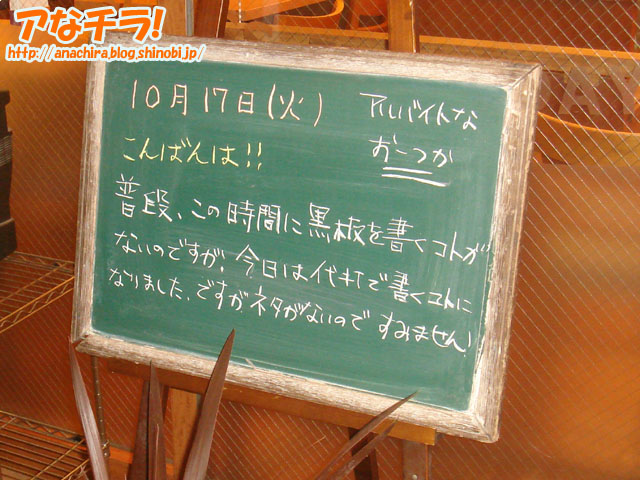 アなチラ!
http://anachira.blog.shinobi.jp/
10月17日(火)
アルバイトな
おーつか
こんばんは!!
普段、この時間に黒板を書くコトが
ないのですが、今日は代打で書くコトに
なりました。ですがネタがないのですみません!